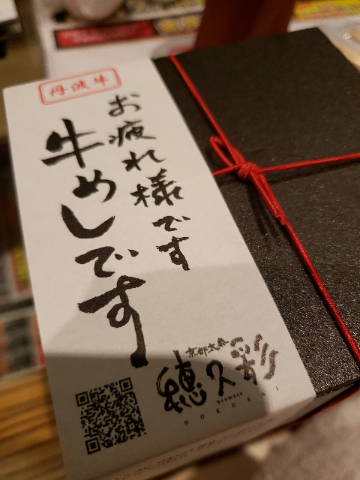 丹波牛
お疲れ様です
牛めしです
京都大原
穂久彩
HOKUSAI